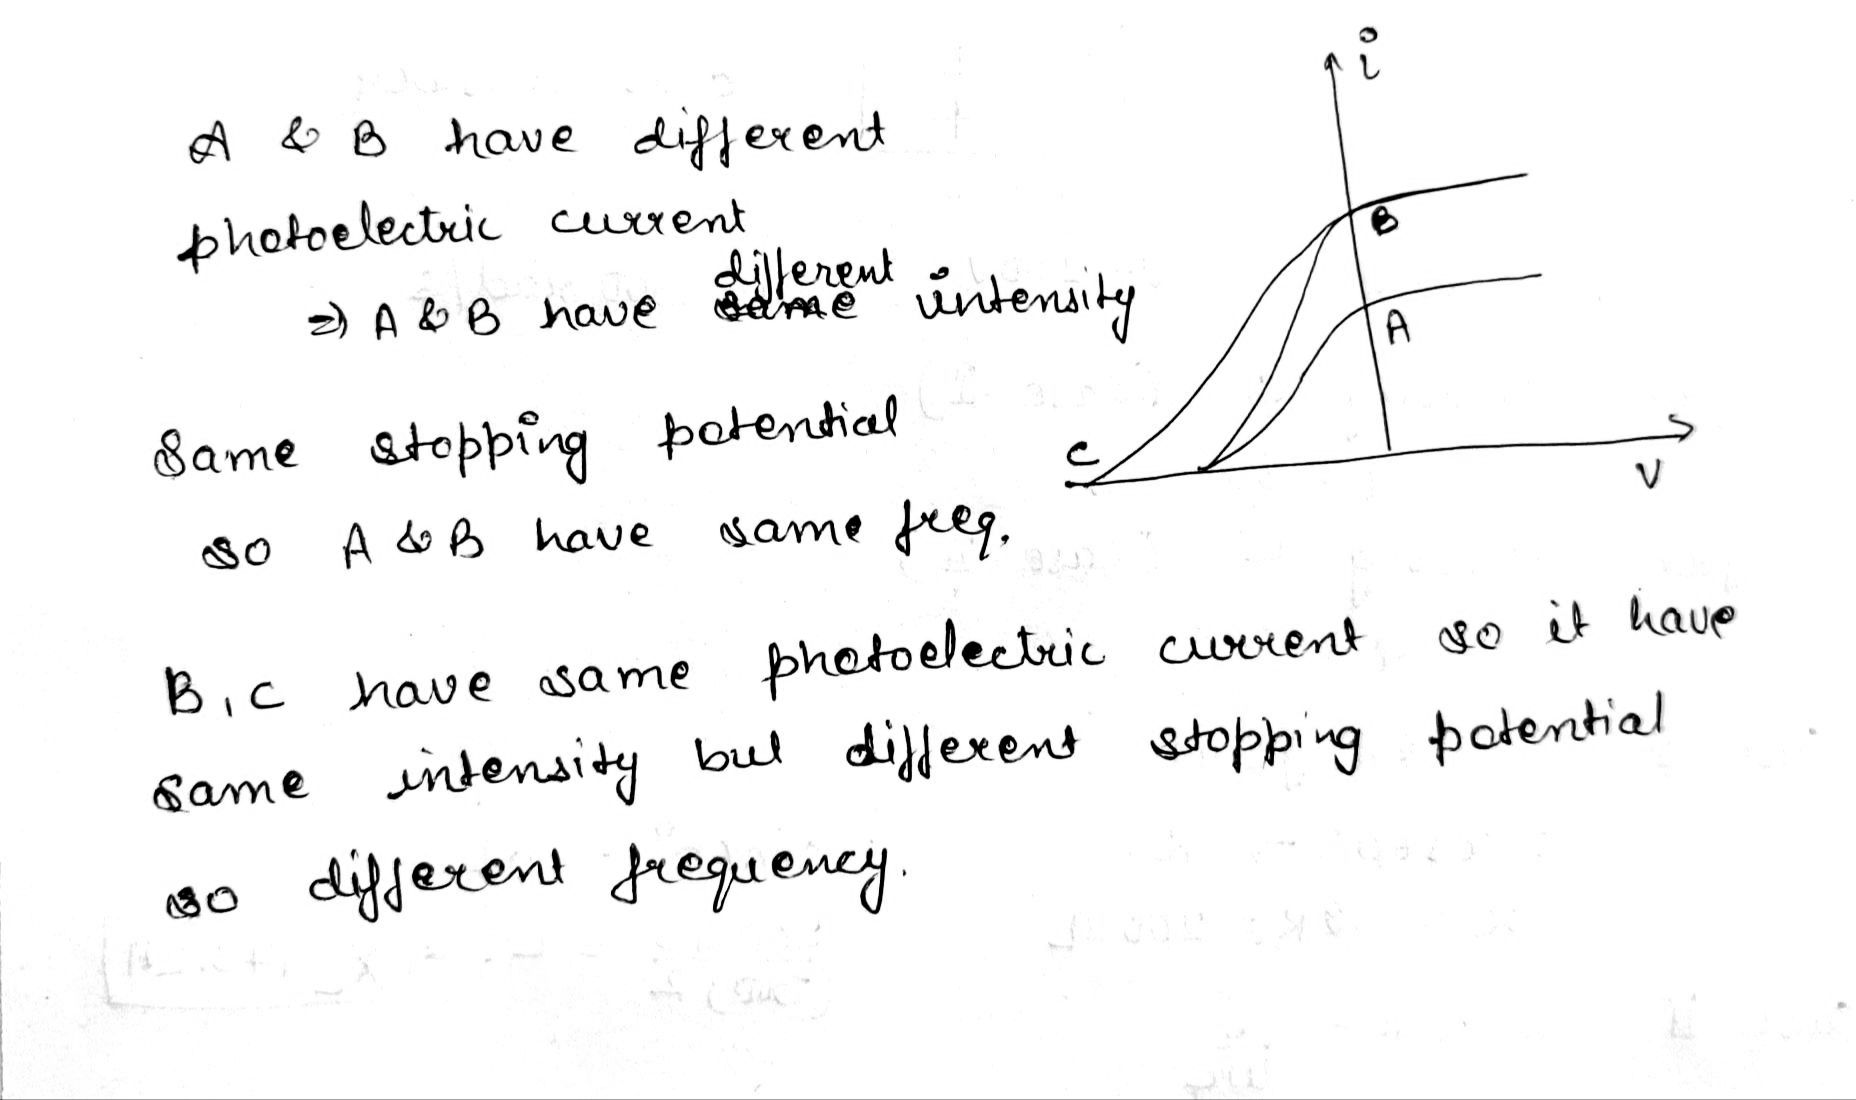 A & B have different
photoelectric current
different
⇒ A & B have same intensity
Same stopping potential
so A & B have same freq.
B, C have same photoelectric current so it have
same intensity but different stopping potential
so different frequency.
i
B
A
C
V